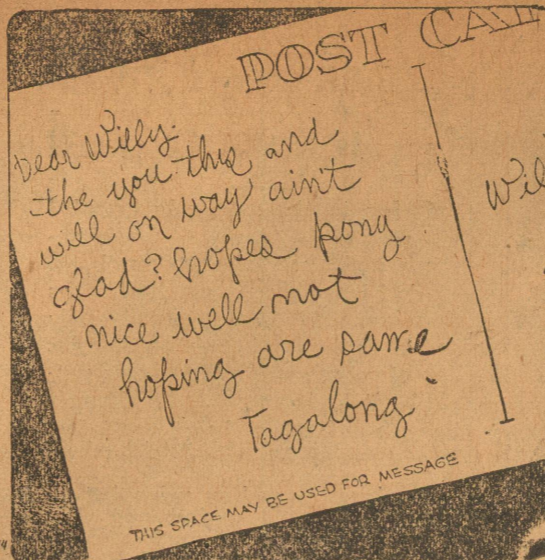 POST CA
Dear Willy.
the you this and
will on way ain't
glad? hopes pony
nice well not
hoping are same
Tagalong
Wil
THIS SPACE MAY BE USED FOR MESSAGE